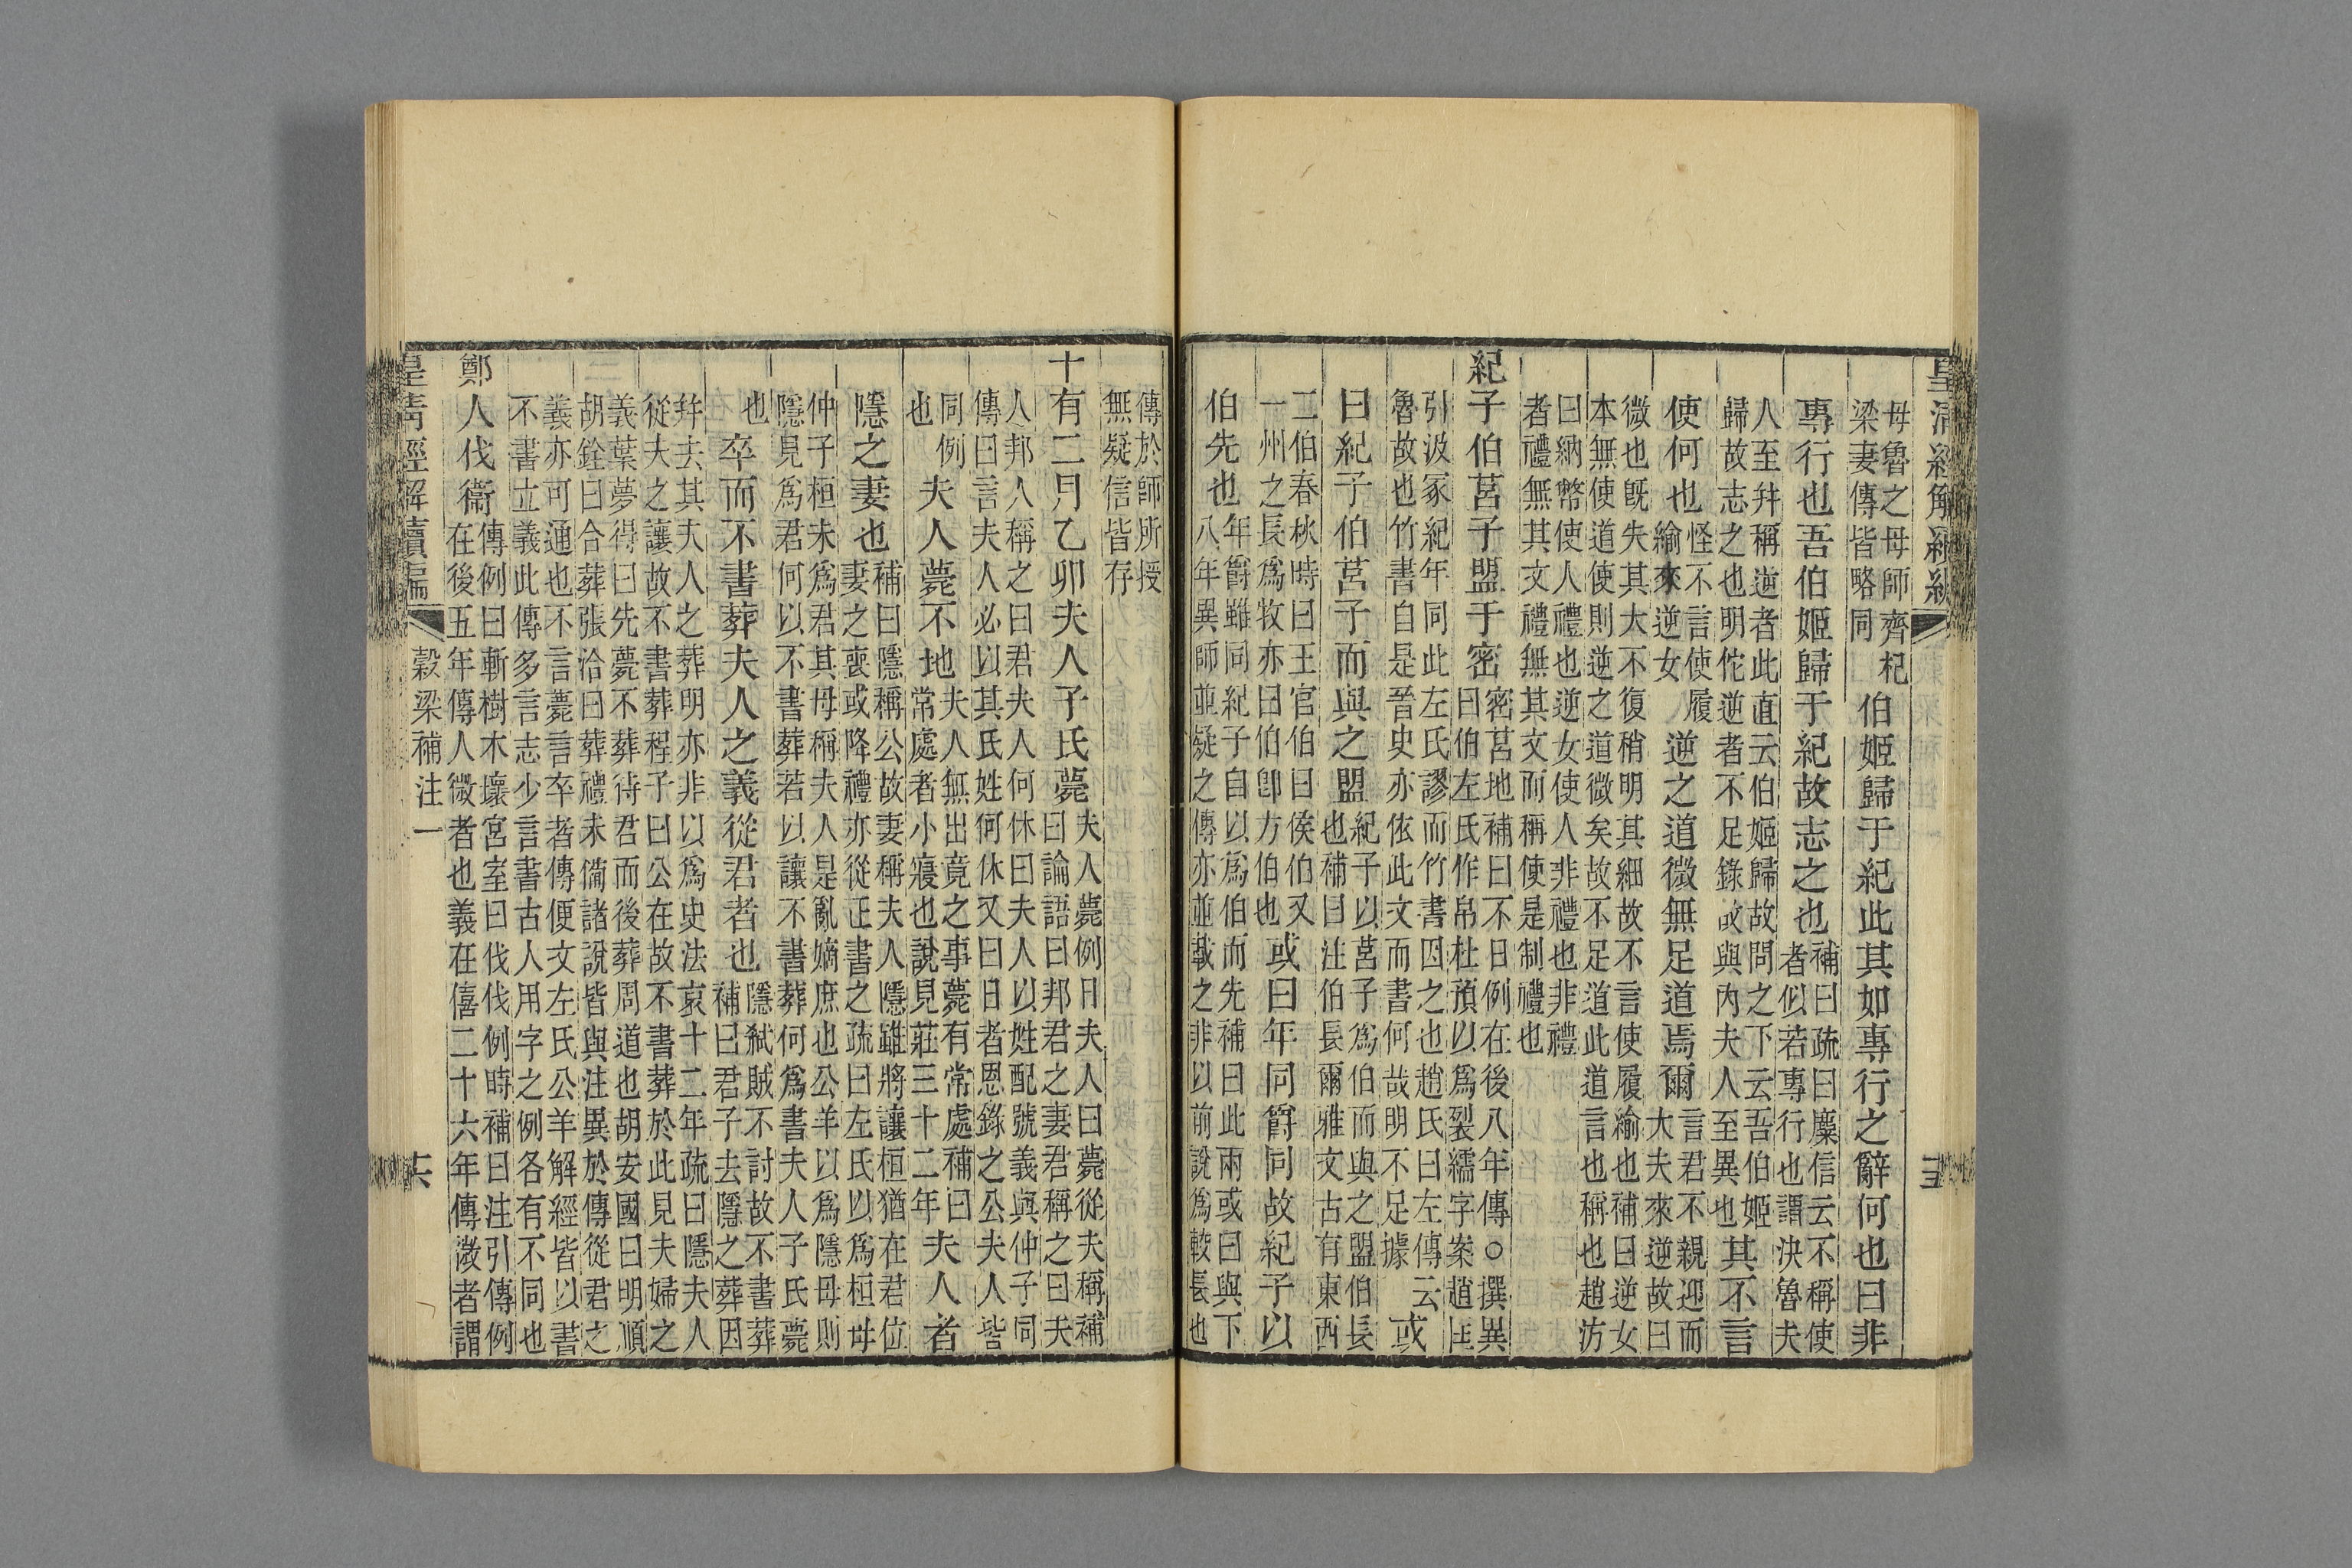 皇清經解續編
母魯之母師齊杞梁妻傳皆略同伯姬歸于紀此其如專行之辭何也曰非
專行也吾伯姬歸于紀故志之也補曰疏曰麋信云不稱使者似若專行也謂決魯夫
人至并稱逆者此直云伯姬歸故問之下云吾伯姬歸故志之也明佗逆者不足錄故與內夫人至異也其不言
使何也怪不言使履緰來逆女逆之道微無足道焉爾言君不親迎而大夫來逆故曰
微也旣失其大不復稍明其細故不言使履緰也補曰逆女本無使道使則逆之道微矣故不足道此道言也稱也趙汸
曰納幣使人禮也逆女使人非禮也非禮者禮無其文禮無其文而稱使是制禮也
紀子伯莒子盟于密密莒地補曰不日例在後八年傳○撰異曰伯左氏作帛杜預以爲裂繻字案趙匡
引汲冢紀年同此左氏謬而竹書因之也趙氏曰左傳云魯故也竹書自是晉史亦依此文而書何哉明不足據或
曰紀子伯莒子而與之盟紀子以莒子爲伯而與之盟伯長也補曰注伯長爾雅文古有東西
二伯春秋時曰王官伯曰侯伯又一州之長爲牧亦曰伯卽方伯也或曰年同爵同故紀子以
伯先也年爵雖同紀子自以爲伯而先補曰此兩或曰與下八年異師並疑之傳亦並載之非以前說爲較長也
傳於師所授無疑信皆存
十有二月乙卯夫人子氏薨夫人薨例日夫人曰薨從夫稱補曰論語曰邦君之妻君稱之曰夫
人邦人稱之曰君夫人何休曰夫人以姓配號義與仲子同傳曰言夫人必以其氏姓何休又曰日者恩錄之公夫人皆
同例也夫人薨不地夫人無出竟之事薨有常處補曰常處者小寢也說見莊三十二年夫人者
隱之妻也補曰隱稱公故妻稱夫人隱雖將讓桓猶在君位妻之喪或降禮亦從正書之疏曰左氏以爲桓母
仲子桓未爲君其母稱夫人是亂嫡庶也公羊以爲隱母則隱見爲君何以不書葬若以讓不書葬何爲書夫人子氏薨
也卒而不書葬夫人之義從君者也隱弒賊不討故不書葬補曰君子去隱之葬因
并去其夫人之葬明亦非以爲史法哀十二年疏曰隱夫人從夫之讓故不書葬程子曰公在故不書葬於此見夫婦之
義葉夢得曰先薨不葬待君而後葬周道也胡安國曰明順胡銓曰合葬張洽曰葬禮未備諸說皆與注異於傳從君之
義亦可通也不言薨言卒者傳便文左氏公羊解經皆以書不書立義此傳多言志少言書古人用字之例各有不同也
鄭人伐衞傳例曰斬樹木壞宮室曰伐伐例時補曰注引傳例在後五年傳人微者也義在僖二十六年傳微者謂
皇清經解續編 穀梁補注一